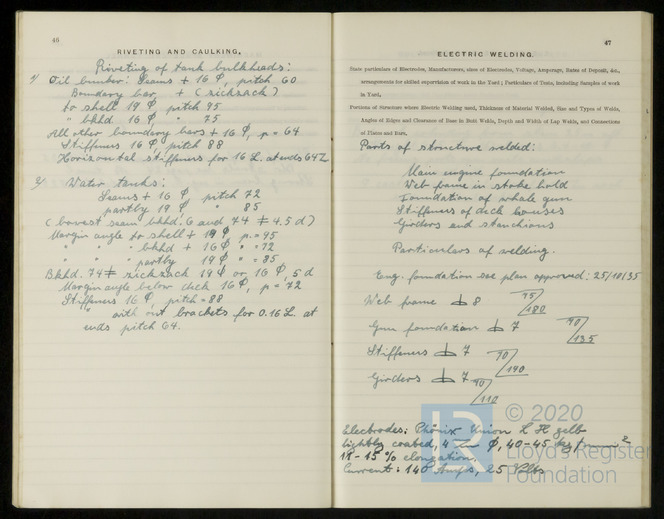 46
RIVETING AND CAULKING.
Riveting of tank bulkheads:
1/ Oil bunker: Seams + 16 Φ, pitch 60
Boundary bar + (zickzack)
to shell 19 Φ pitch 95
" bkhd 16 Φ " 75
All other boundary bars + 16 Φ, p = 64
Stiffeners 16 Φ, pitch 88
Horizontal stiffeners for 16 L. at ends 64
2/ Water tanks:
Seams + 16 Φ pitch 72
partly 19 Φ " 85
(lowest seam bkhd. 6 and 74 ‡ 4.5 d)
Margin angle to shell + 19 Φ p. = 95
" " " bkhd + 16 Φ " = 72
" " " partly 19 Φ " = 85
Bkhd. 74 ‡ zickzack 19 Φ or 16 Φ, 5 d
Margin angle below deck 16 Φ, p = 72
Stiffeners 16 Φ, pitch = 88
" without brackets for 0.16 L. at
ends pitch 64.
47
ELECTRIC WELDING.
State particulars of Electrodes, Manufacturers, sizes of Electrodes, Voltage, Amperage, Rates of Deposit, &c.,
arrangements for skilled supervision of work in the Yard; Particulars of Tests, including Samples of work
in Yard.
Portions of Structure where Electric Welding used, Thickness of Material Welded, Size and Types of Welds,
Angles of Edges and Clearance of Base in Butt Welds, Depth and Width of Lap Welds, and Connections
of Plates and Bars.
Parts of structure welded:
Main engine foundation
Web frame in stoke hold
Foundation of whale gun
Stiffeners of deck houses
Girders and stanchions
Particulars of welding.
Eng. foundation see plan approved: 25/10/35
Web frame 8 75/180
Gun foundation 7 90/135
Stiffeners 7 70/140
Girders 7 90/110
Electrodes: Phönix Union L H gelb
lightly coated, 4 Φ, 40-45 kg/mm²
11-15 % elongation.
Current: 140 Amps, 25 Volts
LR
© 2020
Lloyd's Register
Foundation